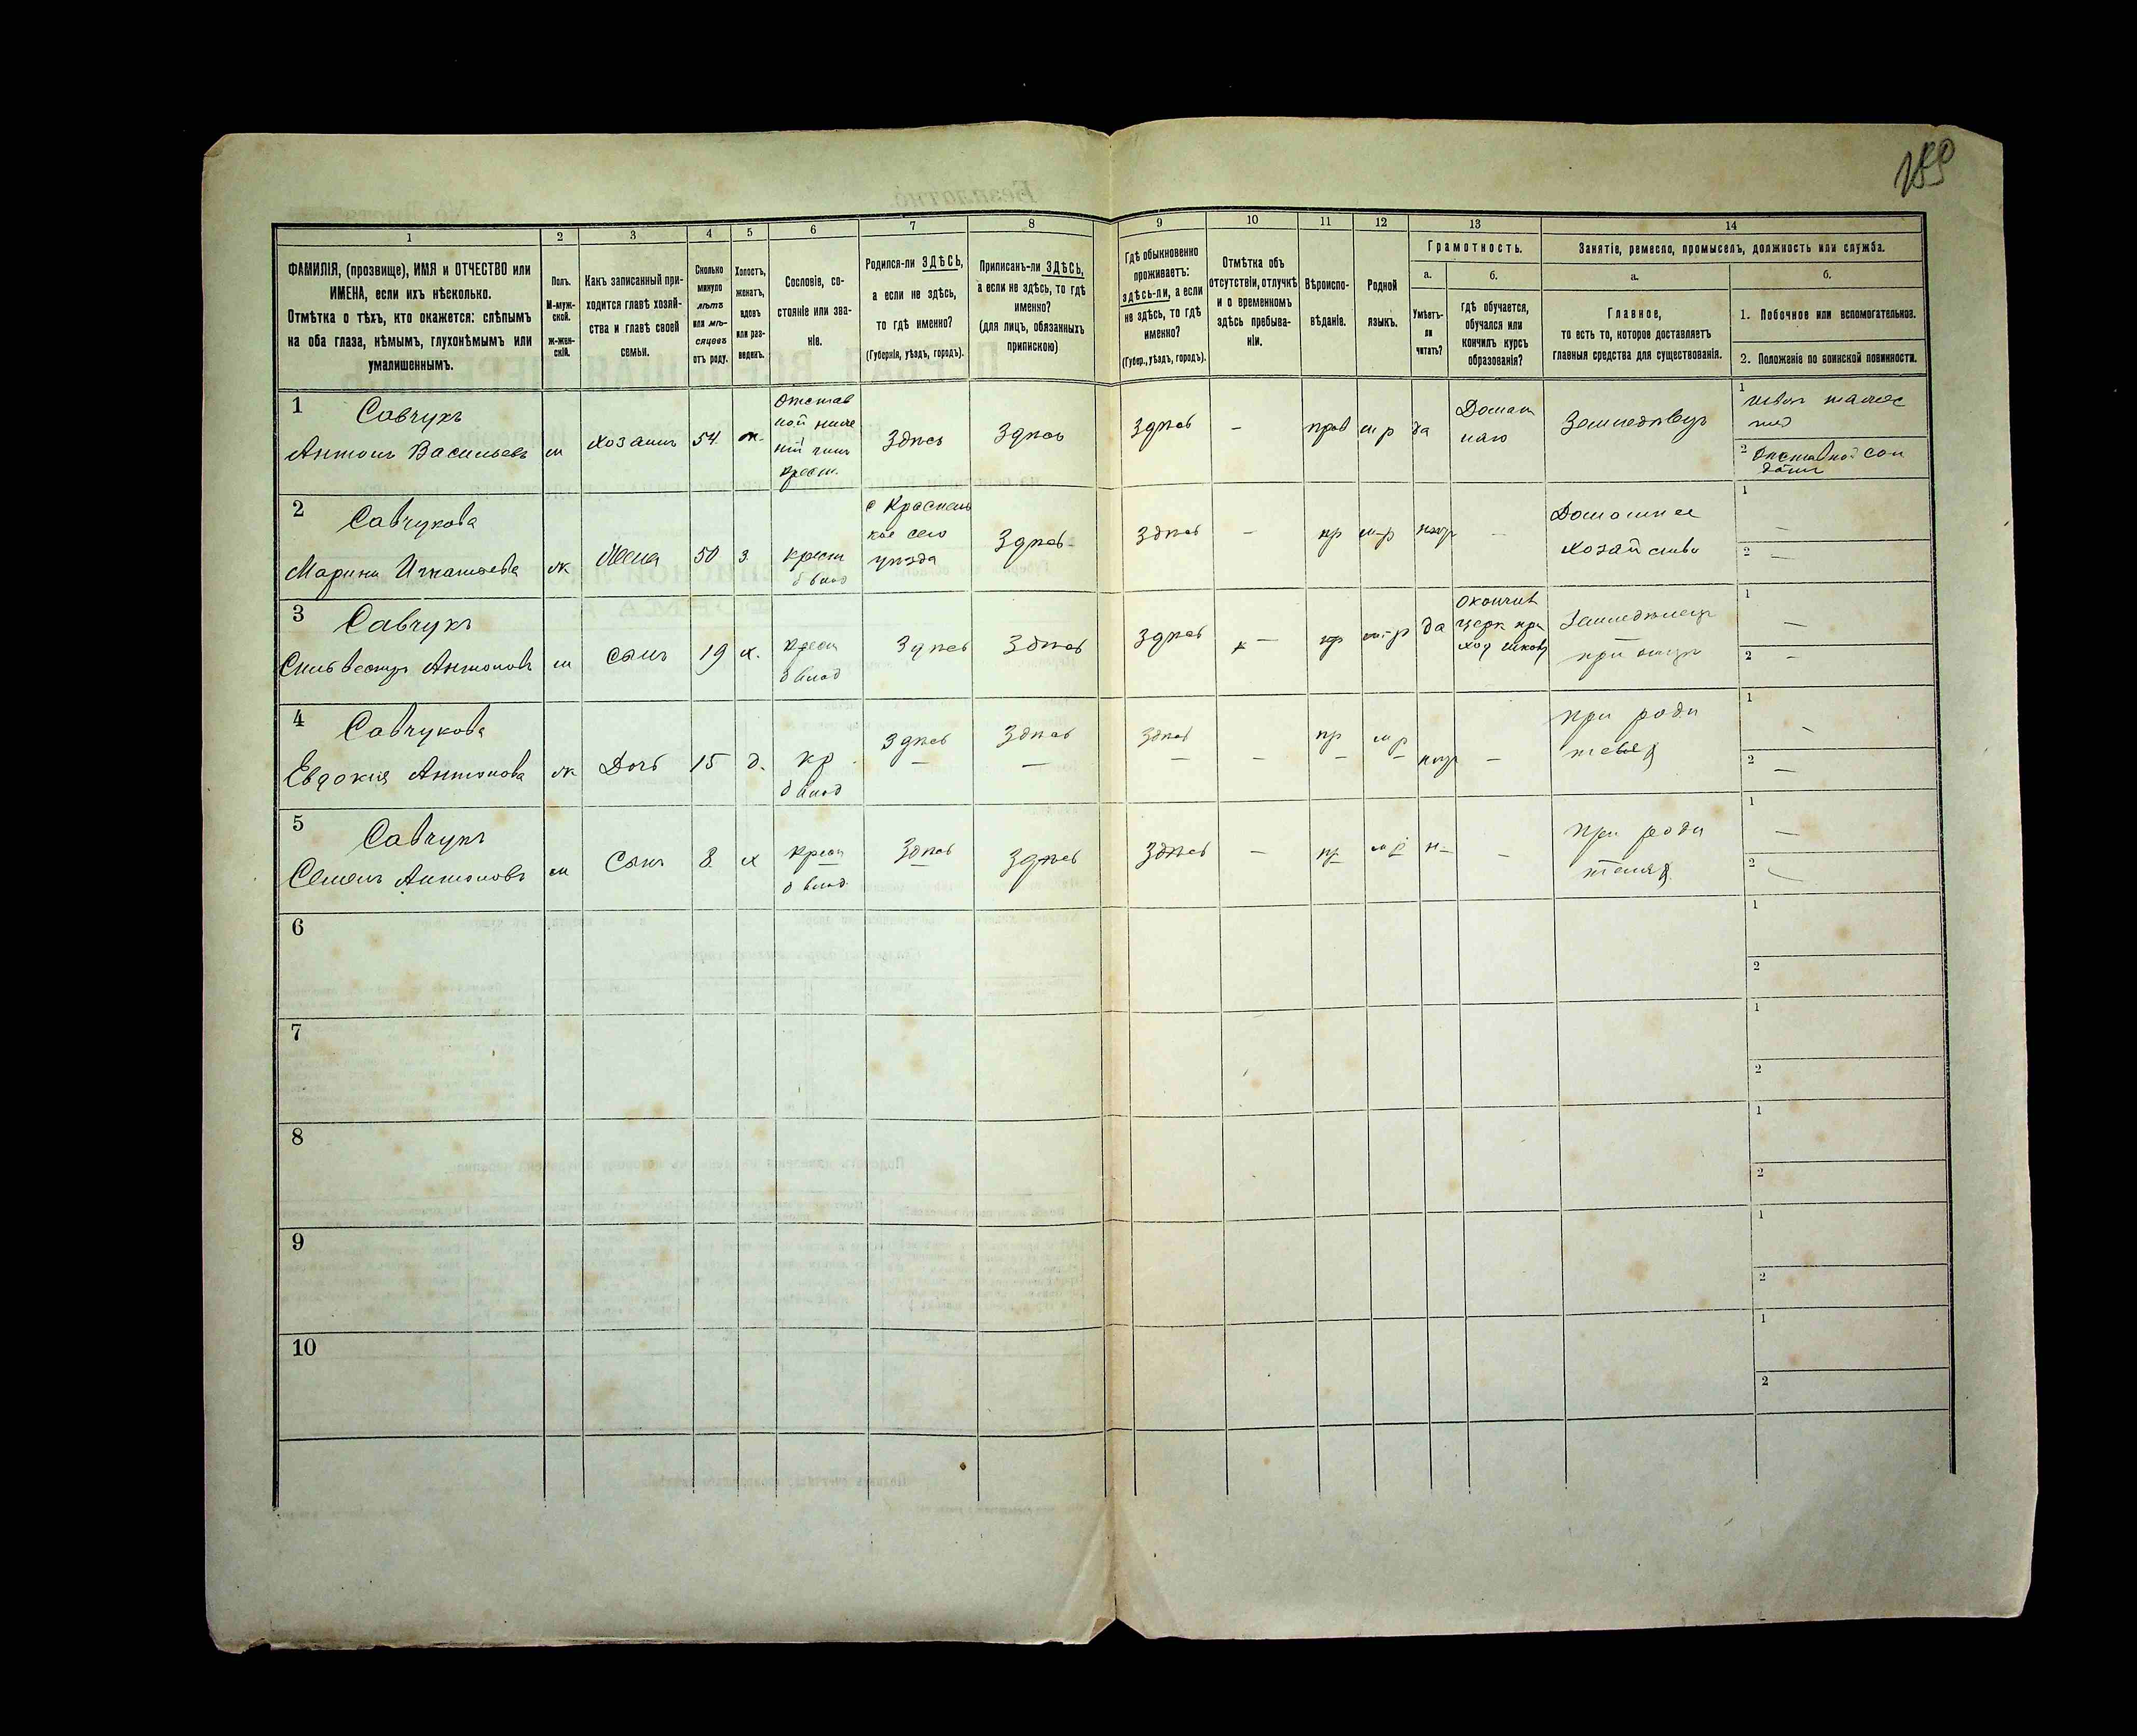 189
1
2
3
4
5
6
7
8
9
10
11
12
13
14
ФАМИЛІЯ, (прозвище), ИМЯ и ОТЧЕСТВО или
ИМЕНА, если ихъ нѣсколько.
Отмѣтка о тѣхъ, кто окажется: слѣпымъ
на оба глаза, нѣмымъ, глухонѣмымъ или
умалишеннымъ.
Полъ.
М-муж-
ской.
ж-жен-
скій.
Какъ записанный при-
ходится главѣ хозяй-
ства и главѣ своей
семьи.
Сколько
минуло
лѣтъ
или мѣ-
сяцевъ
отъ роду.
Холостъ,
женатъ,
вдовъ
или раз-
веденъ.
Сословіе, со-
стояніе или зва-
ніе.
Родился-ли ЗДѢСЬ,
а если не здѣсь,
то гдѣ именно?
(Губернія, уѣздъ, городъ).
Приписанъ-ли ЗДѢСЬ,
а если не здѣсь, то гдѣ
именно?
(для лицъ, обязанныхъ
припискою)
Гдѣ обыкновенно
проживаетъ:
здѣсь-ли, а если
не здѣсь, то гдѣ
именно?
(Губер., уѣздъ, городъ).
Отмѣтка объ
отсутствіи, отлучкѣ
и о временномъ
здѣсь пребыва-
ніи.
Вѣроиспо-
вѣданіе.
Родной
языкъ.
Грамотность.
а.
б.
Умѣетъ-
ли
читать?
Гдѣ обучается,
обучался или
кончилъ курсъ
образованія?
Занятіе, ремесло, промыселъ, должность или служба.
а.
б.
Главное,
то есть то, которое доставляетъ
главныя средства для существованія.
1. Побочное или вспомогательное.
2. Положеніе по воинской повинности.
1
Савчукъ
Антонъ Васильевъ
м
хозяинъ
54
ж.
Отстав
ной ниж
ній чинъ
крест.
Здѣсь
Здѣсь
Здѣсь
—
прав
м р
да
Домаш
наго
Земледѣлецъ
1
2 Отставной сол
датъ
2
Савчукова
Марина Игнатьева
ж
Жена
50
з
крест
б влад
уѣзда
Здѣсь
Здѣсь
—
пр
м-р
негр
—
Домашнее
хозяйство
1 —
2 —
3
Савчукъ
Сильвестръ Антоновъ
м
сынъ
19
х.
крест
б влад
Здѣсь
Здѣсь
Здѣсь
—
пр
м-р
да
Окончил
церк при
ход школу
Земледѣлецъ
при отцѣ
1 —
2 —
4
Савчукова
Евдокія Антонова
ж
Дочь
15
д.
кр
б влад
Здѣсь
Здѣсь
Здѣсь
—
пр
м р
негр
—
при роди
теляхъ
1 —
2 —
5
Савчукъ
Семенъ Антоновъ
м
Сынъ
8
х
крест
б влад
Здѣсь
Здѣсь
Здѣсь
—
пр
м р
н-
—
при роди
теляхъ
1 —
2 —
6
1
2
7
1
2
8
1
2
9
1
2
10
1
2